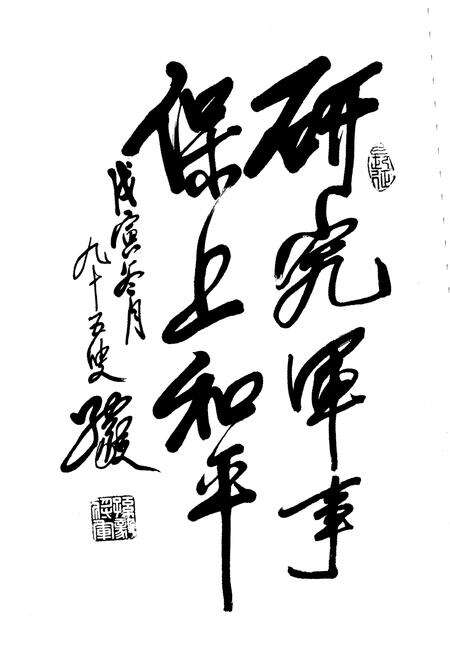 研究军事
保卫和平
戊寅冬月
九十五叟
孙毅
长征